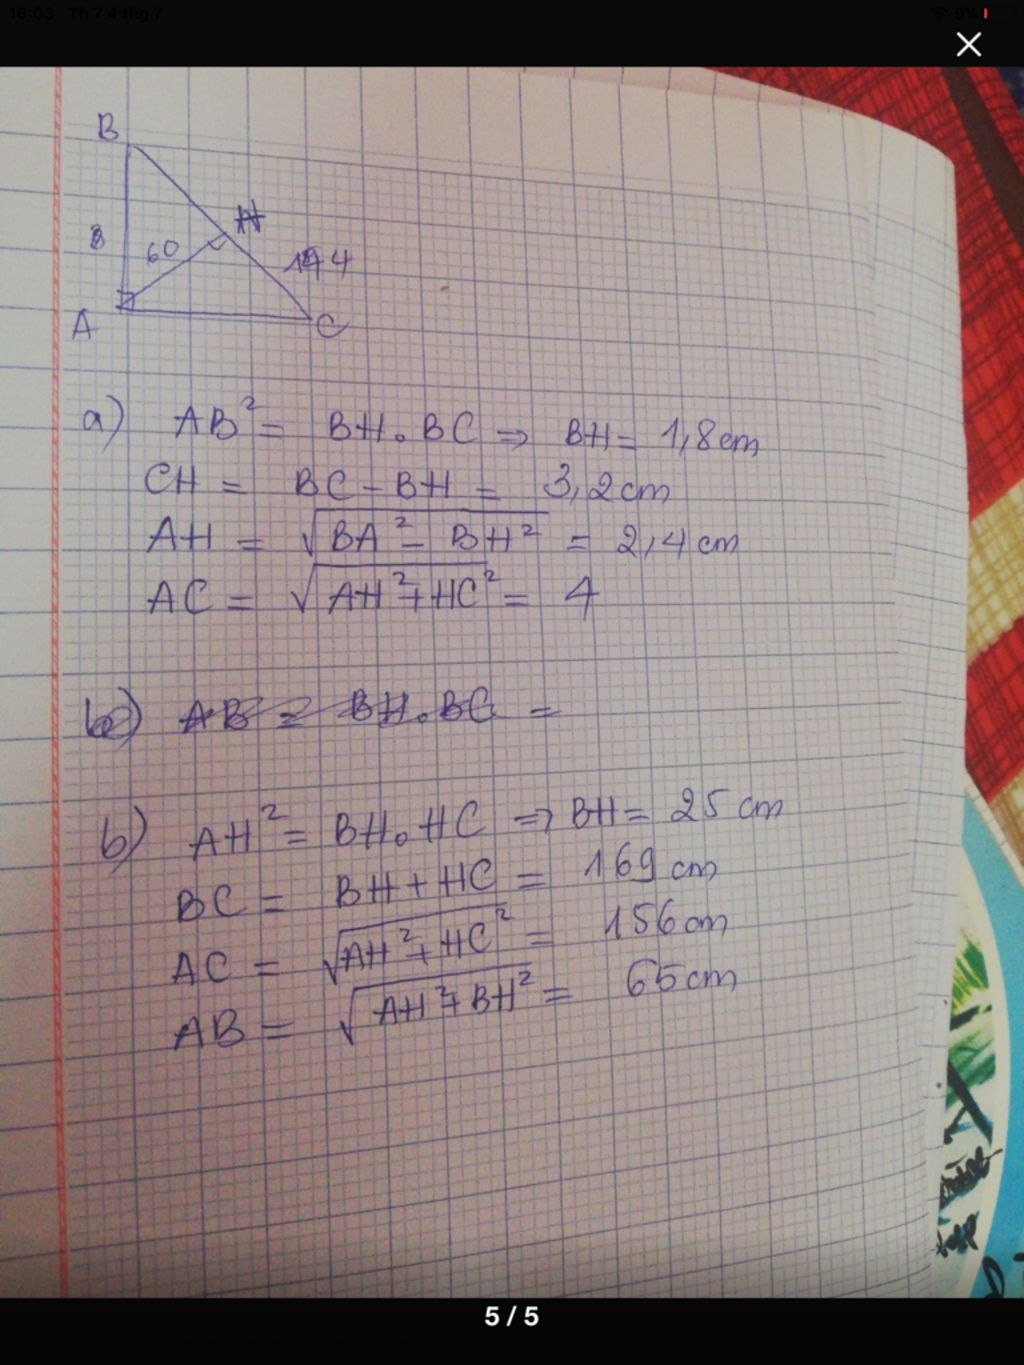 16:03 Th 7 4 thg 7
9%
B
H
60
144
A
C
a) AB² = BH.BC ⇒ BH = 1,8cm
CH = BC - BH = 3,2cm
AH = √BA² - BH² = 2,4cm
AC = √AH² + HC² = 4
b) AB² = BH.BC =
b) AH² = BH.HC ⇒ BH = 25 cm
BC = BH + HC = 169 cm
AC = √AH² + HC² = 156cm
AB = √AH² + BH² = 65cm
5 / 5